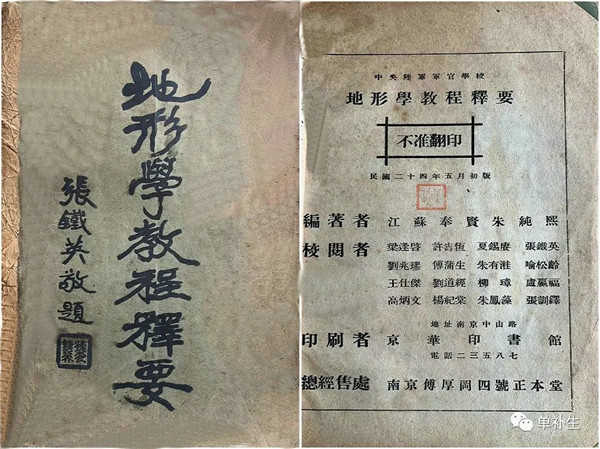 地形學教程釋要
張鐵英敬題
中央陸軍軍官學校
地形學教程釋要
不准翻印
民國二十四年五月初版
編著者 江蘇奉賢朱純熙
校閱者 梁達啓 許肯恆 夏錫賡 張鐵英
劉兆 傅蒲生 朱有淮 喻松齡
王仕傑 劉道經 柳璋 盧贏福
高炳文 楊紀棠 朱鳳藻 張鐸
地址南京中山路
印刷者 京華印書館
電話二三五八七
總經售處 南京傅厚岡四號正本堂
单补生